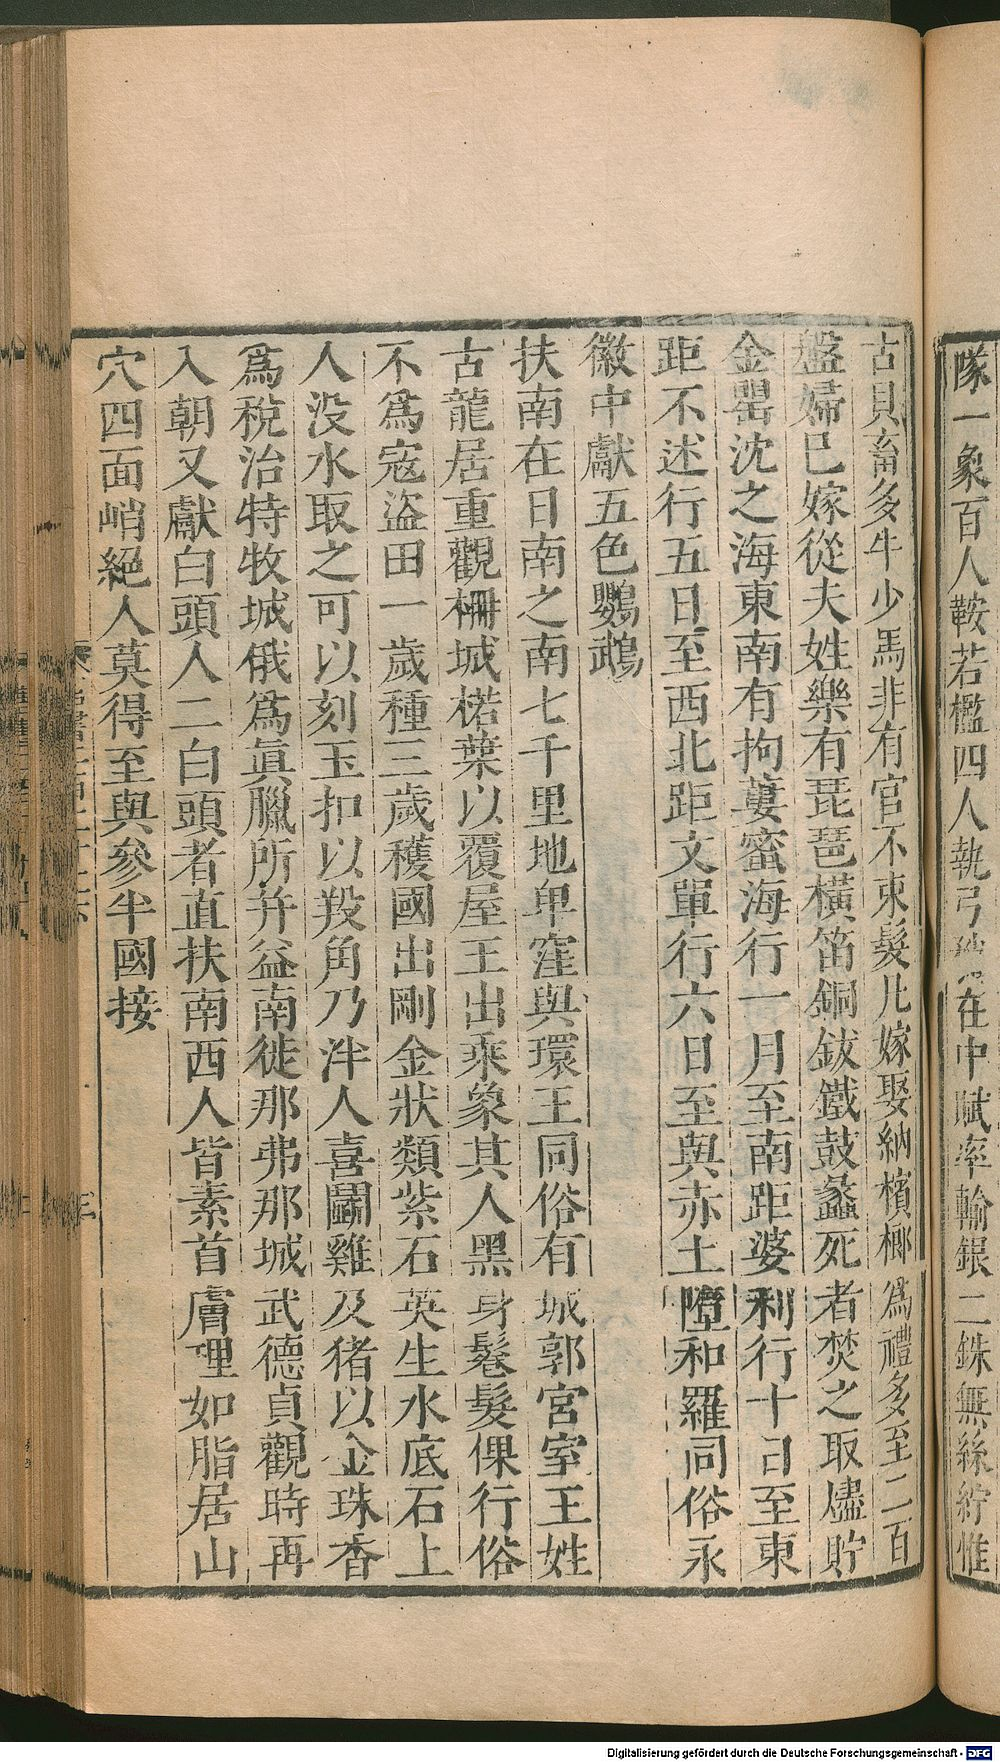 隊一象百人鞍若檻四人執弓在中賦率輸銀二銖無絲紵惟
古貝畜多牛少馬非有官不束髮凡嫁娶納檳榔爲禮多至二百
盤婦巳嫁從夫姓樂有琵琶橫笛銅鈸鐵鼓蠡死者焚之取燼貯
金罌沈之海東南有拘蔞蜜海行一月至南距婆利行十日至東
距不述行五日至西北距文單行六日至與赤土墮和羅同俗永
徽中獻五色鸚鵡
扶南在日南之南七千里地卑窪與環王同俗有城郭宮室王姓
古龍居重觀柵城楉葉以覆屋王出乘象其人黑身鬈髮倮行俗
不爲寇盜田一歲種三歲穫國出剛金狀類紫石英生水底石上
人没水取之可以刻玉扣以羖角乃泮人喜鬭雞及猪以金珠香
爲稅治特牧城俄爲眞臘所并益南徙那弗那城武德貞觀時再
入朝又獻白頭人二白頭者直扶南西人皆素首膚理如脂居山
穴四面峭絕人莫得至與參半國接
三
Digitalisierung gefördert durch die Deutsche Forschungsgemeinschaft - DFG